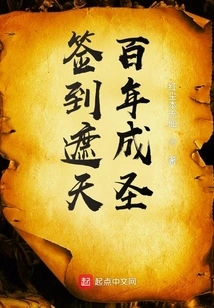 百年成圣
签到遮天
著
起点中文网